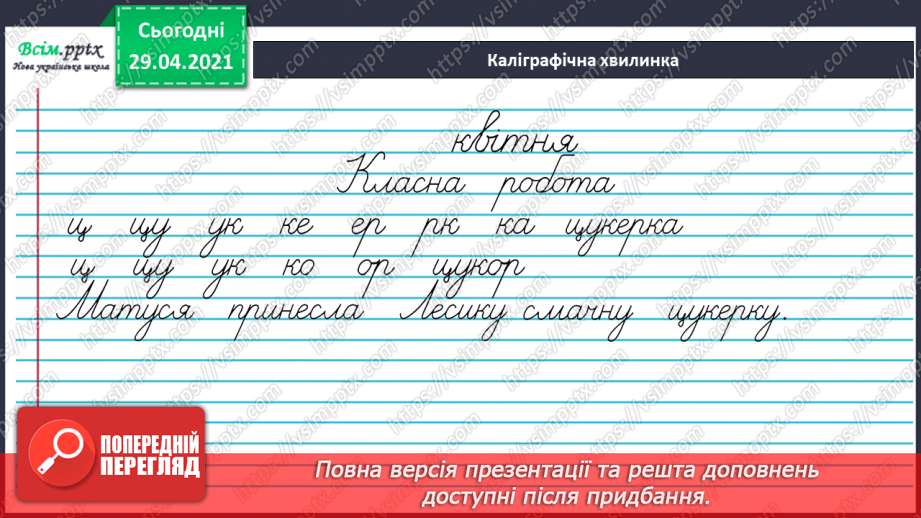 Всім.pptx
Нова українська школа
Сьогодні
29.04.2021
Каліграфічна хвилинка
квітня
Класна робота
ц цу ук ке ер рк ка цукерка
ц цу ук ко ор цукор
Матуся принесла Лесику смачну цукерку.
ПОПЕРЕДНІЙ
ПЕРЕГЛЯД
Повна версія презентації та решта доповнень
доступні після придбання.
https://vsimpptx.com